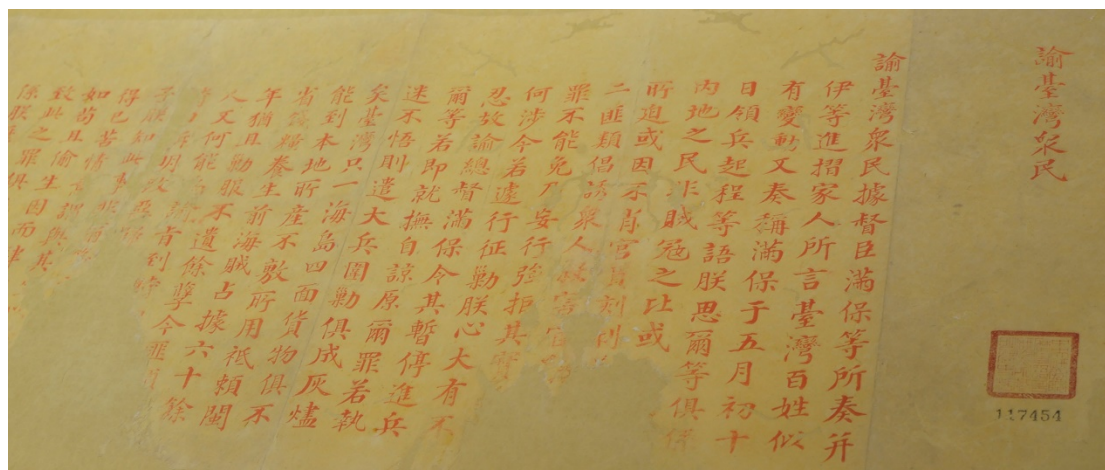 諭臺灣衆民
117454
諭臺灣衆民據督臣滿保等所奏并
伊等進摺家人所言臺灣百姓似
有變動又奏稱滿保于五月初十
日領兵起程等語朕思爾等俱係
内地之民非賊冦之比或
所迫或因不肖官員刻剥
二匪類倡誘衆人
罪不能免乃妄行強拒其實
何涉今若遽行征勦朕心大有不
忍故諭總督滿保令其暫停進兵
爾等若即就撫自諒原爾罪若執
迷不悟則遣大兵圍勦俱成灰燼
矣臺灣只一海島四面貨物俱不
能到本地所產不敷所用祇賴閩
省錢糧養生前海賊占據六十餘
年猶且勦服不遺餘孽今
人又何能
諭旨到
朕如此事
得已苦情
如苟且偷生
致此之罪因
係朕